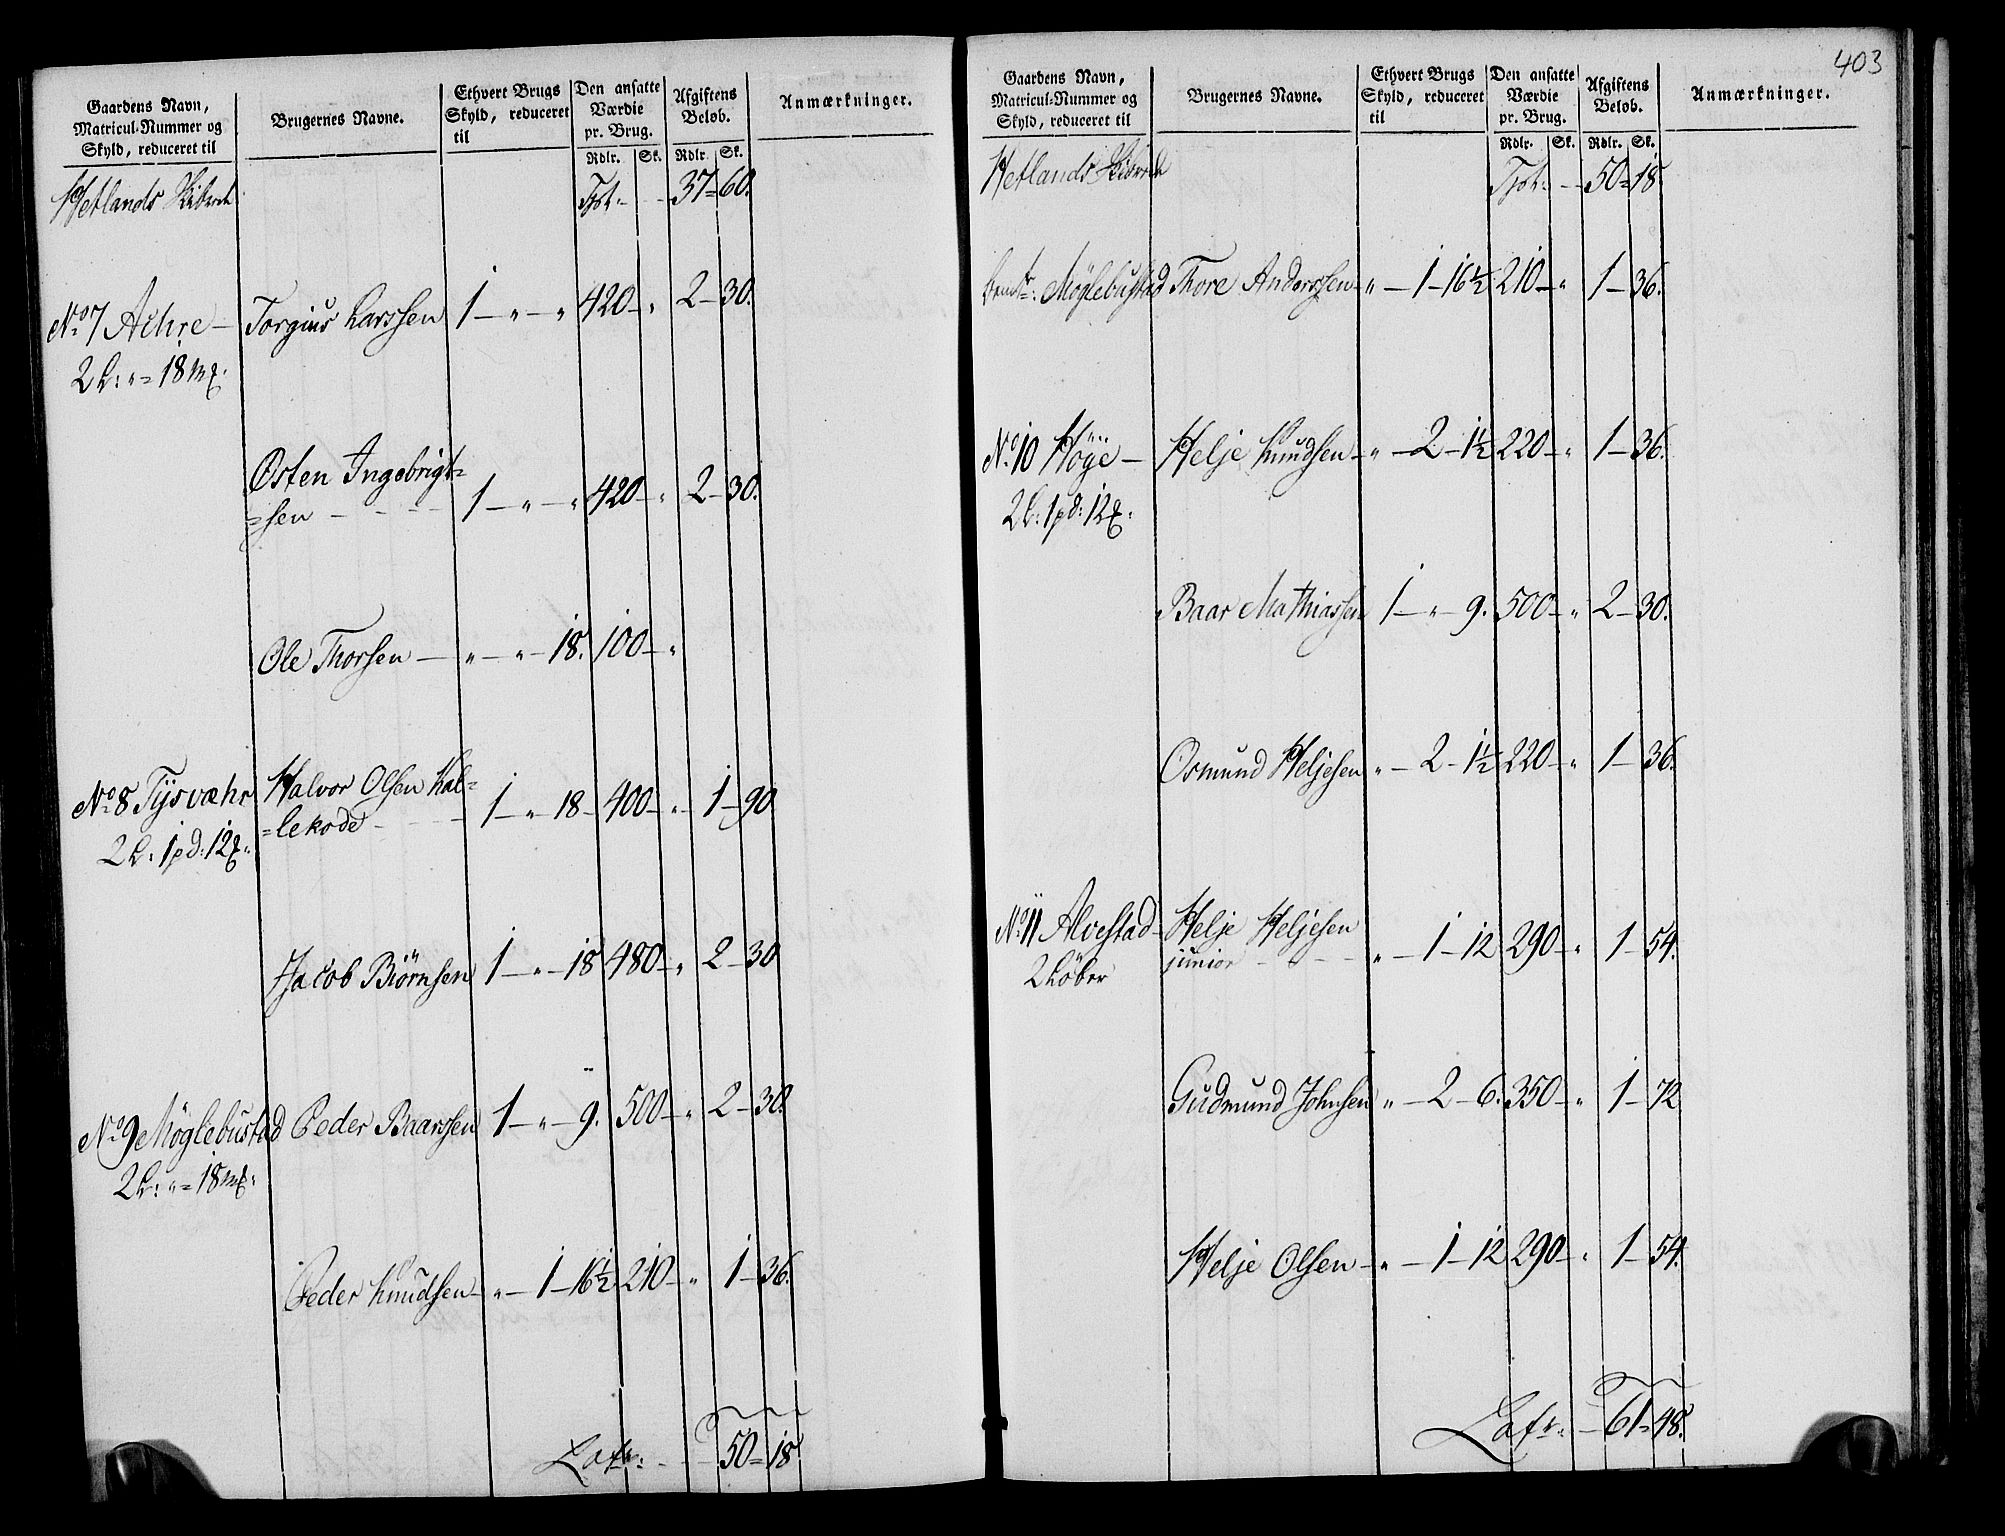 Gaardens Navn,
Matricul-Nummer og
Skyld, reduceret til
Brugernes Navne.
Ethvert Brugs
Skyld, reduceret
til
Den ansatte
Værdie
pr. Brug.
Rdlr. Sk.
Afgiftens
Beløb.
Rdlr. Sk.
Anmærkninger.
Hetlands Skibrede Tpt: - - 37 = 60.
No 7 Aehre – Torgius Larssen 1 – „ – „ 420 – „ 2 – 30.
2 L: „ = 18 mk.
Østen Ingebrigt=
=sen - - - - 1 – „ – „ 420 – „ 2 – 30.
Ole Thorsen — „ – „ – 18. 100 – „
No 8 Tysvæhr Halvor Olsen Kal=
=lekode - - - 1 – „ 18 – 400 – „ – 1 – 90
2 L: 1 pd: 12 mk.
Jacob Biørnsen 1 – „ – 18 480 – „ 2 – 30
No 9 Møglebustad Peder Baarssen 1 – „ – 9. 500 – „ 2 – 30.
2 L: „ = 18 mk.
Peder Knudsen – „ – 1 – 16½ 210 – „ 1 – 36.
Lat: - - 50 = 18
403
Gaardens Navn,
Matricul-Nummer og
Skyld, reduceret til
Brugernes Navne.
Ethvert Brugs
Skyld, reduceret
til
Den ansatte
Værdie
pr. Brug.
Rdlr. Sk.
Afgiftens
Beløb.
Rdlr. Sk.
Anmærkninger.
Hetlands Skibrede Tpt: - - 50 = 18.
Møglebustad Thore Anderssen – „ – 1 – 16½ 210 – „ 1 – 36.
No 10 Høye – Helje Knudsen – „ – 2 – 1½ 220 – „ 1 – 36.
2 L: 1 pd: 12 mk.
Baar Mathiassen 1 – „ – 9. 500 – „ 2 – 30.
Osmund Heljesen „ – 2 – 1½ 220 – „ 1 – 36.
No 11 Alvestad – Helje Heljesen
junior - - - „ – 1 – 12 290 – „ 1 – 54.
2 Løber
Gudmund Johnsen „ – 2 – 6. 350 – „ 1 – 72
Helje Olsen – „ – 1 – 12 290 – „ 1 – 54.
Lat: - 61 = 48.